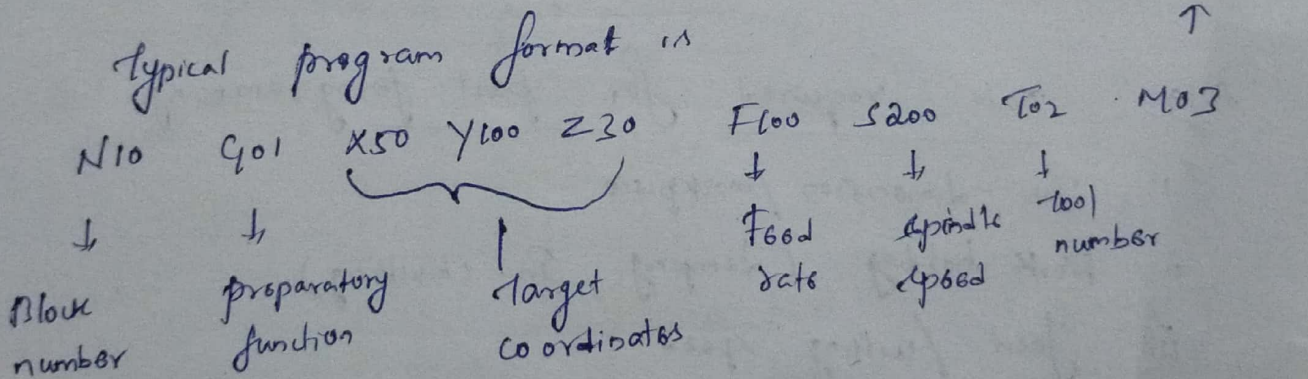 Typical program format is
N10 G01 X50 Y100 Z30 F100 S200 T02 M03
↓ ↓ ↓ ↓ ↓ ↑
Block number
preparatory function
Target coordinates
Feed rate
spindle speed
tool number